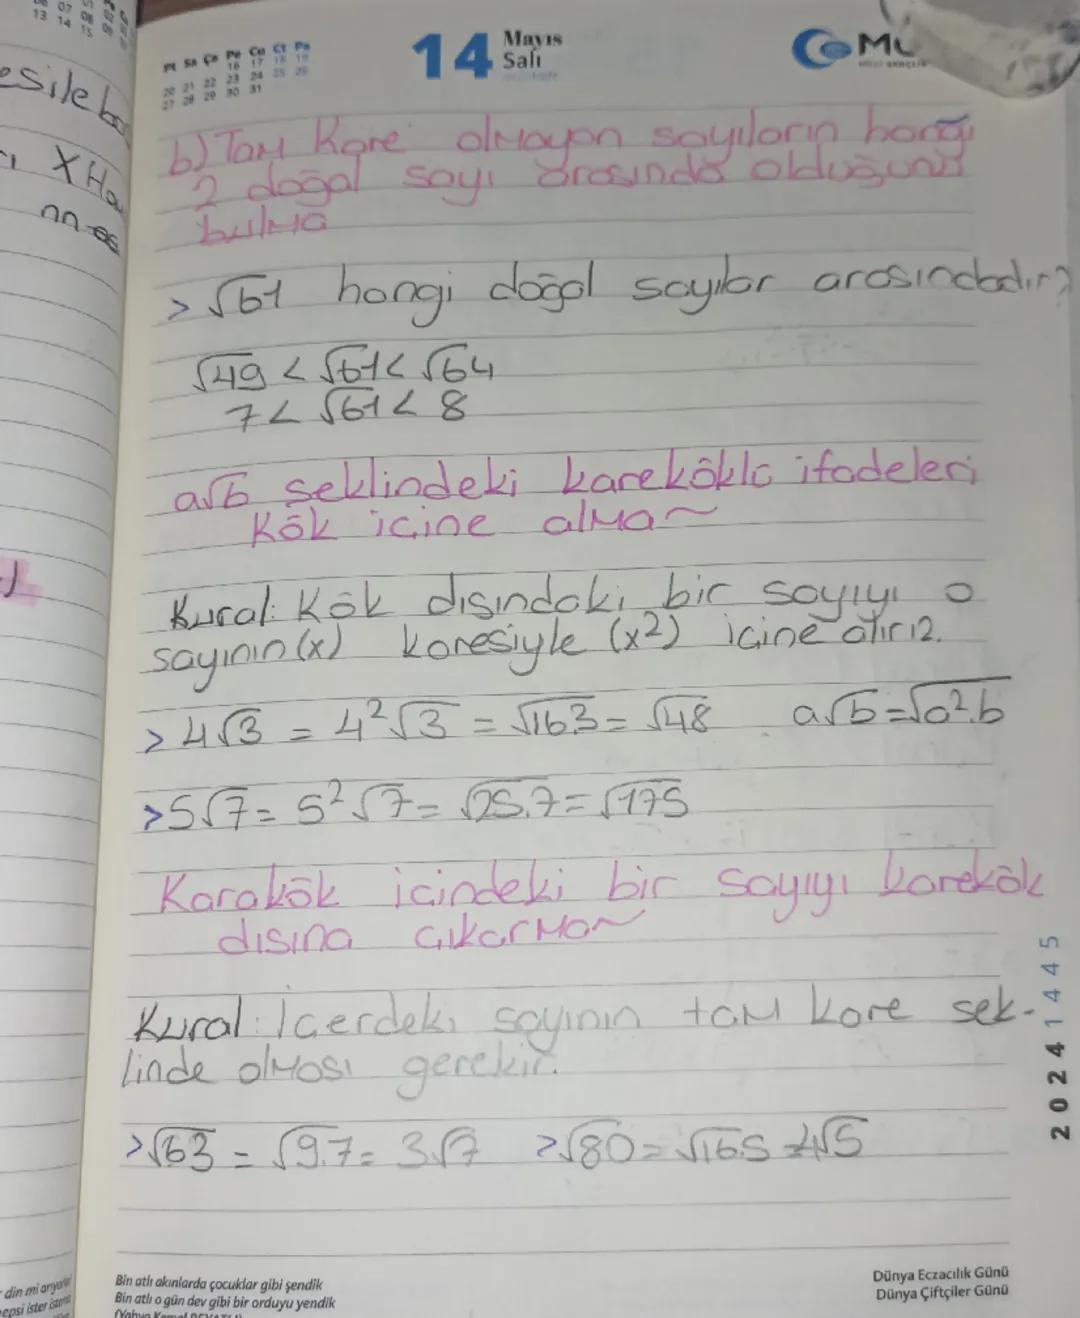 07 08 09
13 14 15
esile
X Ha
14 Mayıs
Salı
Pt Sa Ça Pe Cu Ct Pa
16 17 18 19
20 21 22 23 24 25 26
27 28 29 30 31
b) Tam Kare olmayan sayıların hangi
2 doğal sayı arasında olduğunu
bulma
> √61 hangi doğal sayılar arasındadır?
√49 < √61 < √64
7 < √61 < 8
a√b şeklindeki kareköklü ifadeleri
Kök içine alma~
Kural: Kök dışındaki bir sayıyı o
sayının (x) karesiyle (x2) içine atırız.
> 4√3 = 4²√3 = √16.3 = √48 a√b=√a².b
> 5√7 = 5²√7 = √25.7 = √175
Karakök içindeki bir sayıyı karekök
dışına çıkarma~
Kural: İçerdeki sayının tam kare şek-
linde olması gerekir.
> √63 = √9.7 = 3√7 > √80 = √16.5 = 4√5
2024 1445
din mi arıyor
epsi ister
Bin atlı akınlarda çocuklar gibi şendik
Bin atlı o gün dev gibi bir orduyu yendik
Dünya Eczacılık Günü
Dünya Çiftçiler Günü